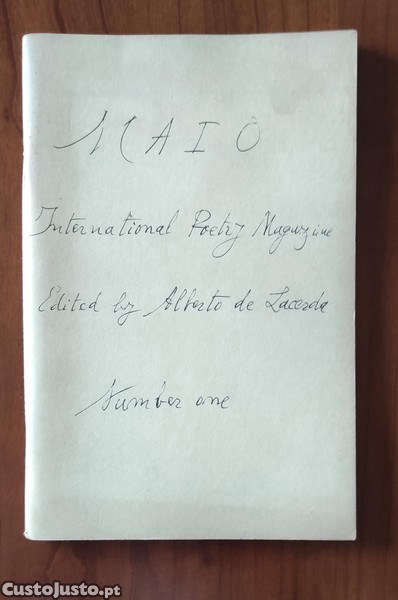 MAIO
International Poetry Magazine
Edited by Alberto de Lacerda
Number one
CustoJusto.pt